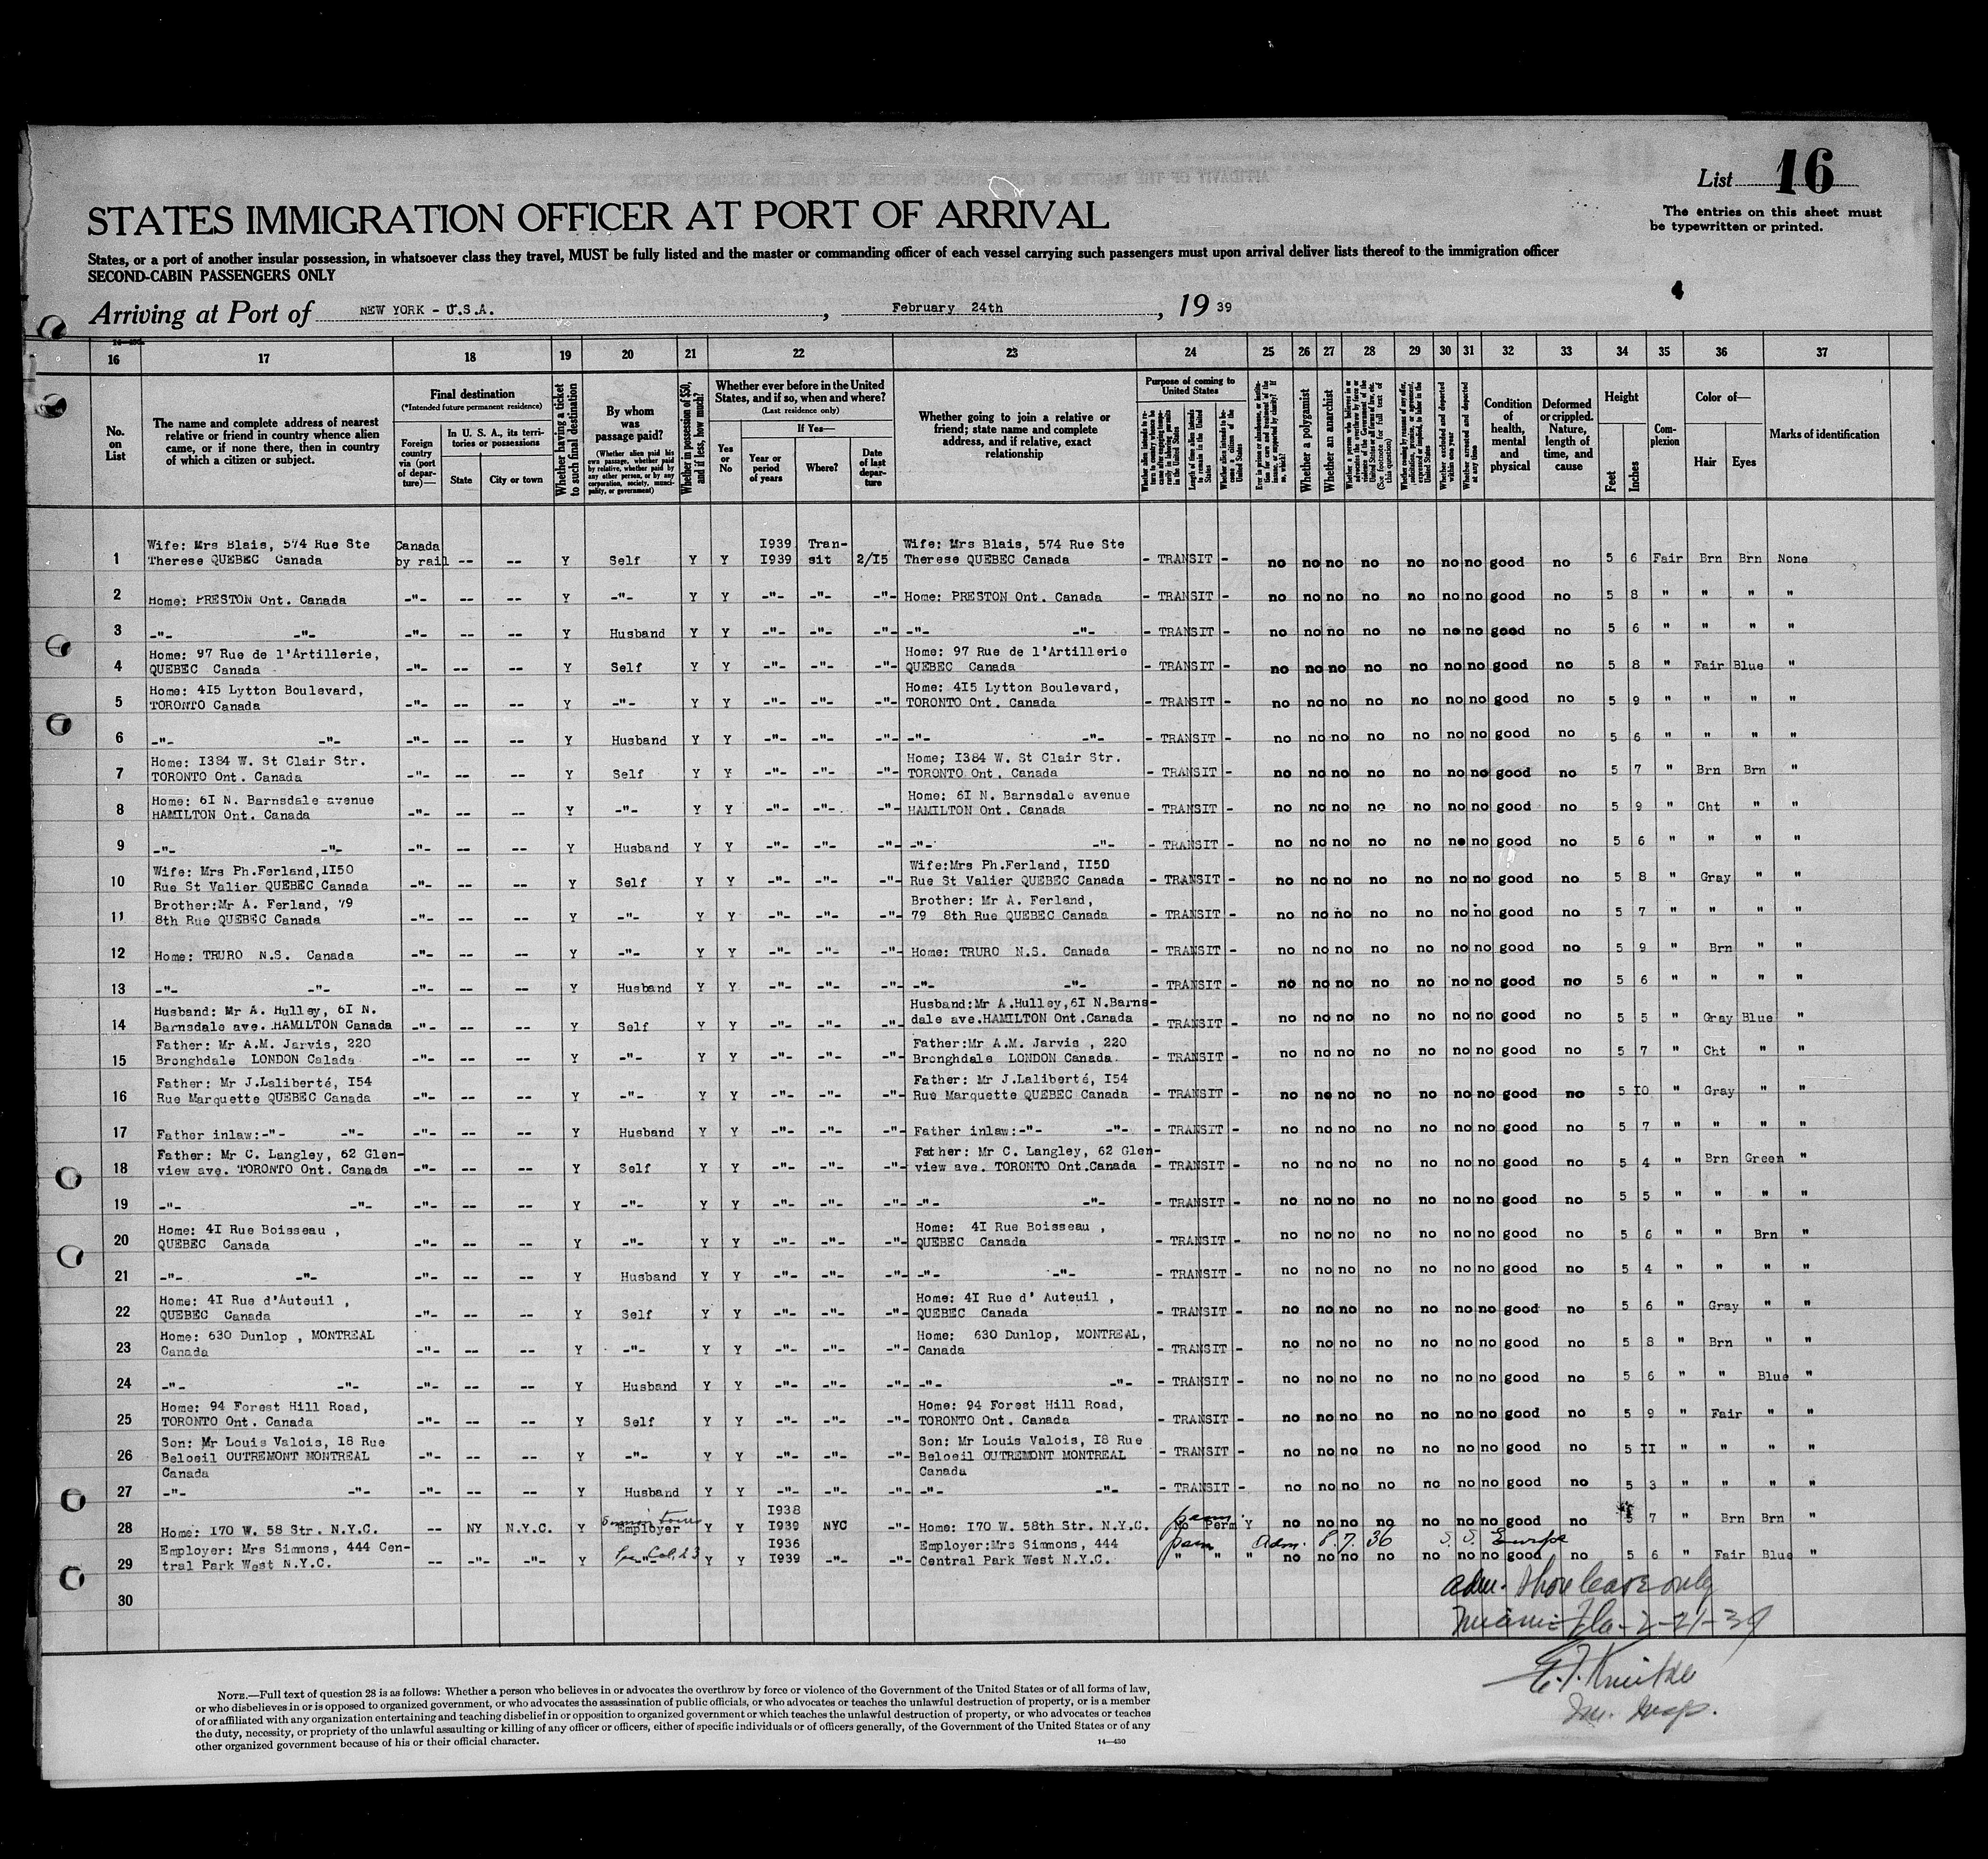 List 16
The entries on this sheet must
be typewritten or printed.
STATES IMMIGRATION OFFICER AT PORT OF ARRIVAL
States, or a port of another insular possession, in whatsoever class they travel, MUST be fully listed and the master or commanding officer of each vessel carrying such passengers must upon arrival deliver lists thereof to the immigration officer
SECOND-CABIN PASSENGERS ONLY
Arriving at Port of NEW YORK - U.S.A. , February 24th , 19 39
16 17 18 19 20 21 22 23 24 25 26 27 28 29 30 31 32 33 34 35 36 37
No. on List
The name and complete address of nearest relative or friend in country whence alien came, or if none there, then in country of which a citizen or subject.
Final destination
(*Intended future permanent residence)
Foreign country via (port of departure)—
In U. S. A., its territories or possessions
State
City or town
Whether having a ticket to such final destination
By whom was passage paid?
(Whether alien paid his own passage, whether paid by relative, whether paid by any other person, or by any corporation, society, municipality, or government)
Whether in possession of $50, and if less, how much?
Whether ever before in the United States, and if so, when and where?
(Last residence only)
Yes or No
If Yes—
Year or period of years
Where?
Date of last departure
Whether going to join a relative or friend; state name and complete address, and if relative, exact relationship
Purpose of coming to United States
Whether a polygamist
Whether an anarchist
Whether excluded and deported within one year
Whether arrested and deported at any time
Condition of health, mental and physical
Deformed or crippled. Nature, length of time, and cause
Height
Feet
Inches
Complexion
Color of—
Hair
Eyes
Marks of identification
1 Wife: Mrs Blais, 574 Rue Ste Therese QUEBEC Canada Canada by rail -- -- Y Self Y Y I939 I939 Tran-sit 2/I5 Wife: Mrs Blais, 574 Rue Ste Therese QUEBEC Canada - TRANSIT - no no no no no no no good no 5 6 Fair Brn Brn None
2 Home: PRESTON Ont. Canada -"- -- -- Y -"- Y Y -"- -"- -"- Home: PRESTON Ont. Canada - TRANSIT - no no no no no no no good no 5 8 " " " "
3 -"- -"- -"- -- -- Y Husband Y Y -"- -"- -"- -"- -"- - TRANSIT - no no no no no no no good no 5 6 " " " "
4 Home: 97 Rue de l'Artillerie, QUEBEC Canada -"- -- -- Y Self Y Y -"- -"- -"- Home: 97 Rue de l'Artillerie QUEBEC Canada - TRANSIT - no no no no no no no good no 5 8 " Fair Blue "
5 Home: 4I5 Lytton Boulevard, TORONTO Canada -"- -- -- Y -"- Y Y -"- -"- -"- Home: 4I5 Lytton Boulevard, TORONTO Ont. Canada - TRANSIT - no no no no no no no good no 5 9 " " " "
6 -"- -"- -"- -- -- Y Husband Y Y -"- -"- -"- -"- -"- - TRANSIT - no no no no no no no good no 5 6 " " " "
7 Home: I384 W. St Clair Str. TORONTO Ont. Canada -"- -- -- Y Self Y Y -"- -"- -"- Home; I384 W. St Clair Str. TORONTO Ont. Canada - TRANSIT - no no no no no no no good no 5 7 " Brn Brn "
8 Home: 6I N. Barnsdale avenue HAMILTON Ont. Canada -"- -- -- Y -"- Y Y -"- -"- -"- Home: 6I N. Barnsdale avenue HAMILTON Ont. Canada - TRANSIT - no no no no no no no good no 5 9 " Cht " "
9 -"- -"- -"- -- -- Y Husband Y Y -"- -"- -"- -"- -"- - TRANSIT - no no no no no no no good no 5 6 " " " "
10 Wife: Mrs Ph.Ferland,II50 Rue St Valier QUEBEC Canada -"- -- -- Y Self Y Y -"- -"- -"- Wife:Mrs Ph.Ferland, II50 Rue St Valier QUEBEC Canada - TRANSIT - no no no no no no no good no 5 8 " Gray " "
11 Brother:Mr A. Ferland, 79 8th Rue QUEBEC Canada -"- -- -- Y -"- Y Y -"- -"- -"- Brother: Mr A. Ferland, 79 8th Rue QUEBEC Canada - TRANSIT - no no no no no no no good no 5 7 " " " "
12 Home: TRURO N.S. Canada -"- -- -- Y -"- Y Y -"- -"- -"- Home: TRURO N.S. Canada - TRANSIT - no no no no no no no good no 5 9 " Brn " "
13 -"- -"- -"- -- -- Y Husband Y Y -"- -"- -"- -"- -"- - TRANSIT - no no no no no no no good no 5 6 " " " "
14 Husband: Mr A. Hulley, 6I N. Barnsdale ave. HAMILTON Canada -"- -- -- Y Self Y Y -"- -"- -"- Husband:Mr A.Hulley,6I N.Barns-dale ave.HAMILTON Ont.Canada - TRANSIT - no no no no no no no good no 5 5 " Gray Blue "
15 Father: Mr A.M. Jarvis, 220 Bronghdale LONDON Calada -"- -- -- Y -"- Y Y -"- -"- -"- Father:Mr A.M. Jarvis , 220 Bronghdale LONDON Canada. - TRANSIT - no no no no no no no good no 5 7 " Cht " "
16 Father: Mr J.Laliberté, I54 Rue Marquette QUEBEC Canada -"- -- -- Y -"- Y Y -"- -"- -"- Father: Mr J.Laliberté, I54 Rue Marquette QUEBEC Canada - TRANSIT - no no no no no no no good no 5 I0 " Gray " "
17 Father inlaw:-"- -"- -"- -- -- Y Husband Y Y -"- -"- -"- Father inlaw:-"- -"- - TRANSIT - no no no no no no no good no 5 7 " " " "
18 Father: Mr C. Langley, 62 Glen-view ave. TORONTO Ont. Canada -"- -- -- Y Self Y Y -"- -"- -"- Father: Mr C. Langley, 62 Glen-view ave. TORONTO Ont.Canada - TRANSIT - no no no no no no no good no 5 4 " Brn Green "
19 -"- -"- -"- -- -- Y -"- Y Y -"- -"- -"- -"- -"- - TRANSIT - no no no no no no no good no 5 5 " " " "
20 Home: 4I Rue Boisseau , QUEBEC Canada -"- -- -- Y -"- Y Y -"- -"- -"- Home: 4I Rue Boisseau , QUEBEC Canada - TRANSIT - no no no no no no no good no 5 6 " " Brn "
21 -"- -"- -"- -- -- Y Husband Y Y -"- -"- -"- -"- -"- - TRANSIT - no no no no no no no good no 5 4 " " " "
22 Home: 4I Rue d'Auteuil , QUEBEC Canada -"- -- -- Y Self Y Y -"- -"- -"- Home: 4I Rue d' Auteuil , QUEBEC Canada - TRANSIT - no no no no no no no good no 5 6 " Gray " "
23 Home: 630 Dunlop , MONTREAL Canada -"- -- -- Y -"- Y Y -"- -"- -"- Home: 630 Dunlop, MONTREAL, Canada - TRANSIT - no no no no no no no good no 5 8 " Brn " "
24 -"- -"- -"- -- -- Y Husband Y Y -"- -"- -"- -"- -"- - TRANSIT - no no no no no no no good no 5 6 " " Blue "
25 Home: 94 Forest Hill Road, TORONTO Ont. Canada -"- -- -- Y Self Y Y -"- -"- -"- Home: 94 Forest Hill Road, TORONTO Ont. Canada - TRANSIT - no no no no no no no good no 5 9 " Fair " "
26 Son: Mr Louis Valois, I8 Rue Beloeil OUTREMONT MONTREAL Canada -"- -- -- Y -"- Y Y -"- -"- -"- Son: Mr Louis Valois, I8 Rue Beloeil OUTREMONT MONTREAL Canada - TRANSIT - no no no no no no no good no 5 II " " " "
27 -"- -"- -"- -- -- Y Husband Y Y -"- -"- -"- -"- -"- - TRANSIT - no no no no no no no good no 5 3 " " " "
28 Home: I70 W. 58 Str. N.Y.C. -- NY N.Y.C. Y Employer Y Y I938 I939 NYC -"- Home: I70 W. 58th Str. N.Y.C. No Perm Y no no no no no no no good no 5 7 " Brn Brn "
29 Employer: Mrs Simmons, 444 Cen-tral Park West N.Y.C. -- -"- -"- Y -"- Y Y I936 I939 -"- -"- Employer:Mrs Simmons, 444 Central Park West N.Y.C. " " " no no no no no no no good no 5 6 " Fair Blue "
Adm. 8.7.36 S.S. Europa
30
adm. shore leave only
Miami Fla - 2-21-39
Im. Insp.
NOTE.—Full text of question 28 is as follows: Whether a person who believes in or advocates the overthrow by force or violence of the Government of the United States or of all forms of law,
or who disbelieves in or is opposed to organized government, or who advocates the assassination of public officials, or who advocates or teaches the unlawful destruction of property, or is a member
of or affiliated with any organization entertaining and teaching disbelief in or opposition to organized government or which teaches the unlawful destruction of property, or who advocates or teaches
the duty, necessity, or propriety of the unlawful assaulting or killing of any officer or officers, either of specific individuals or of officers generally, of the Government of the United States or of any
other organized government because of his or their official character.
14—430